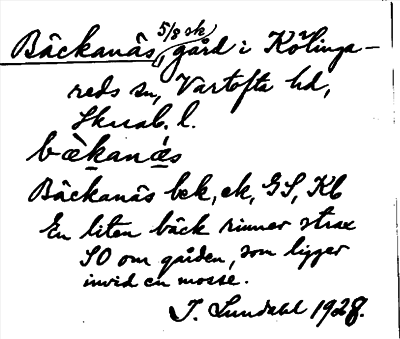 Bäckanäs, 5/8 sk gård i Kölinga-
reds sn, Vartofta hd,
Skarab. l.
bækanæs
Bäckanäs bek, ek, GS, Kb
En liten bäck rinner strax
SO om gården, som ligger
invid en mosse.
J. Lundahl 1928.